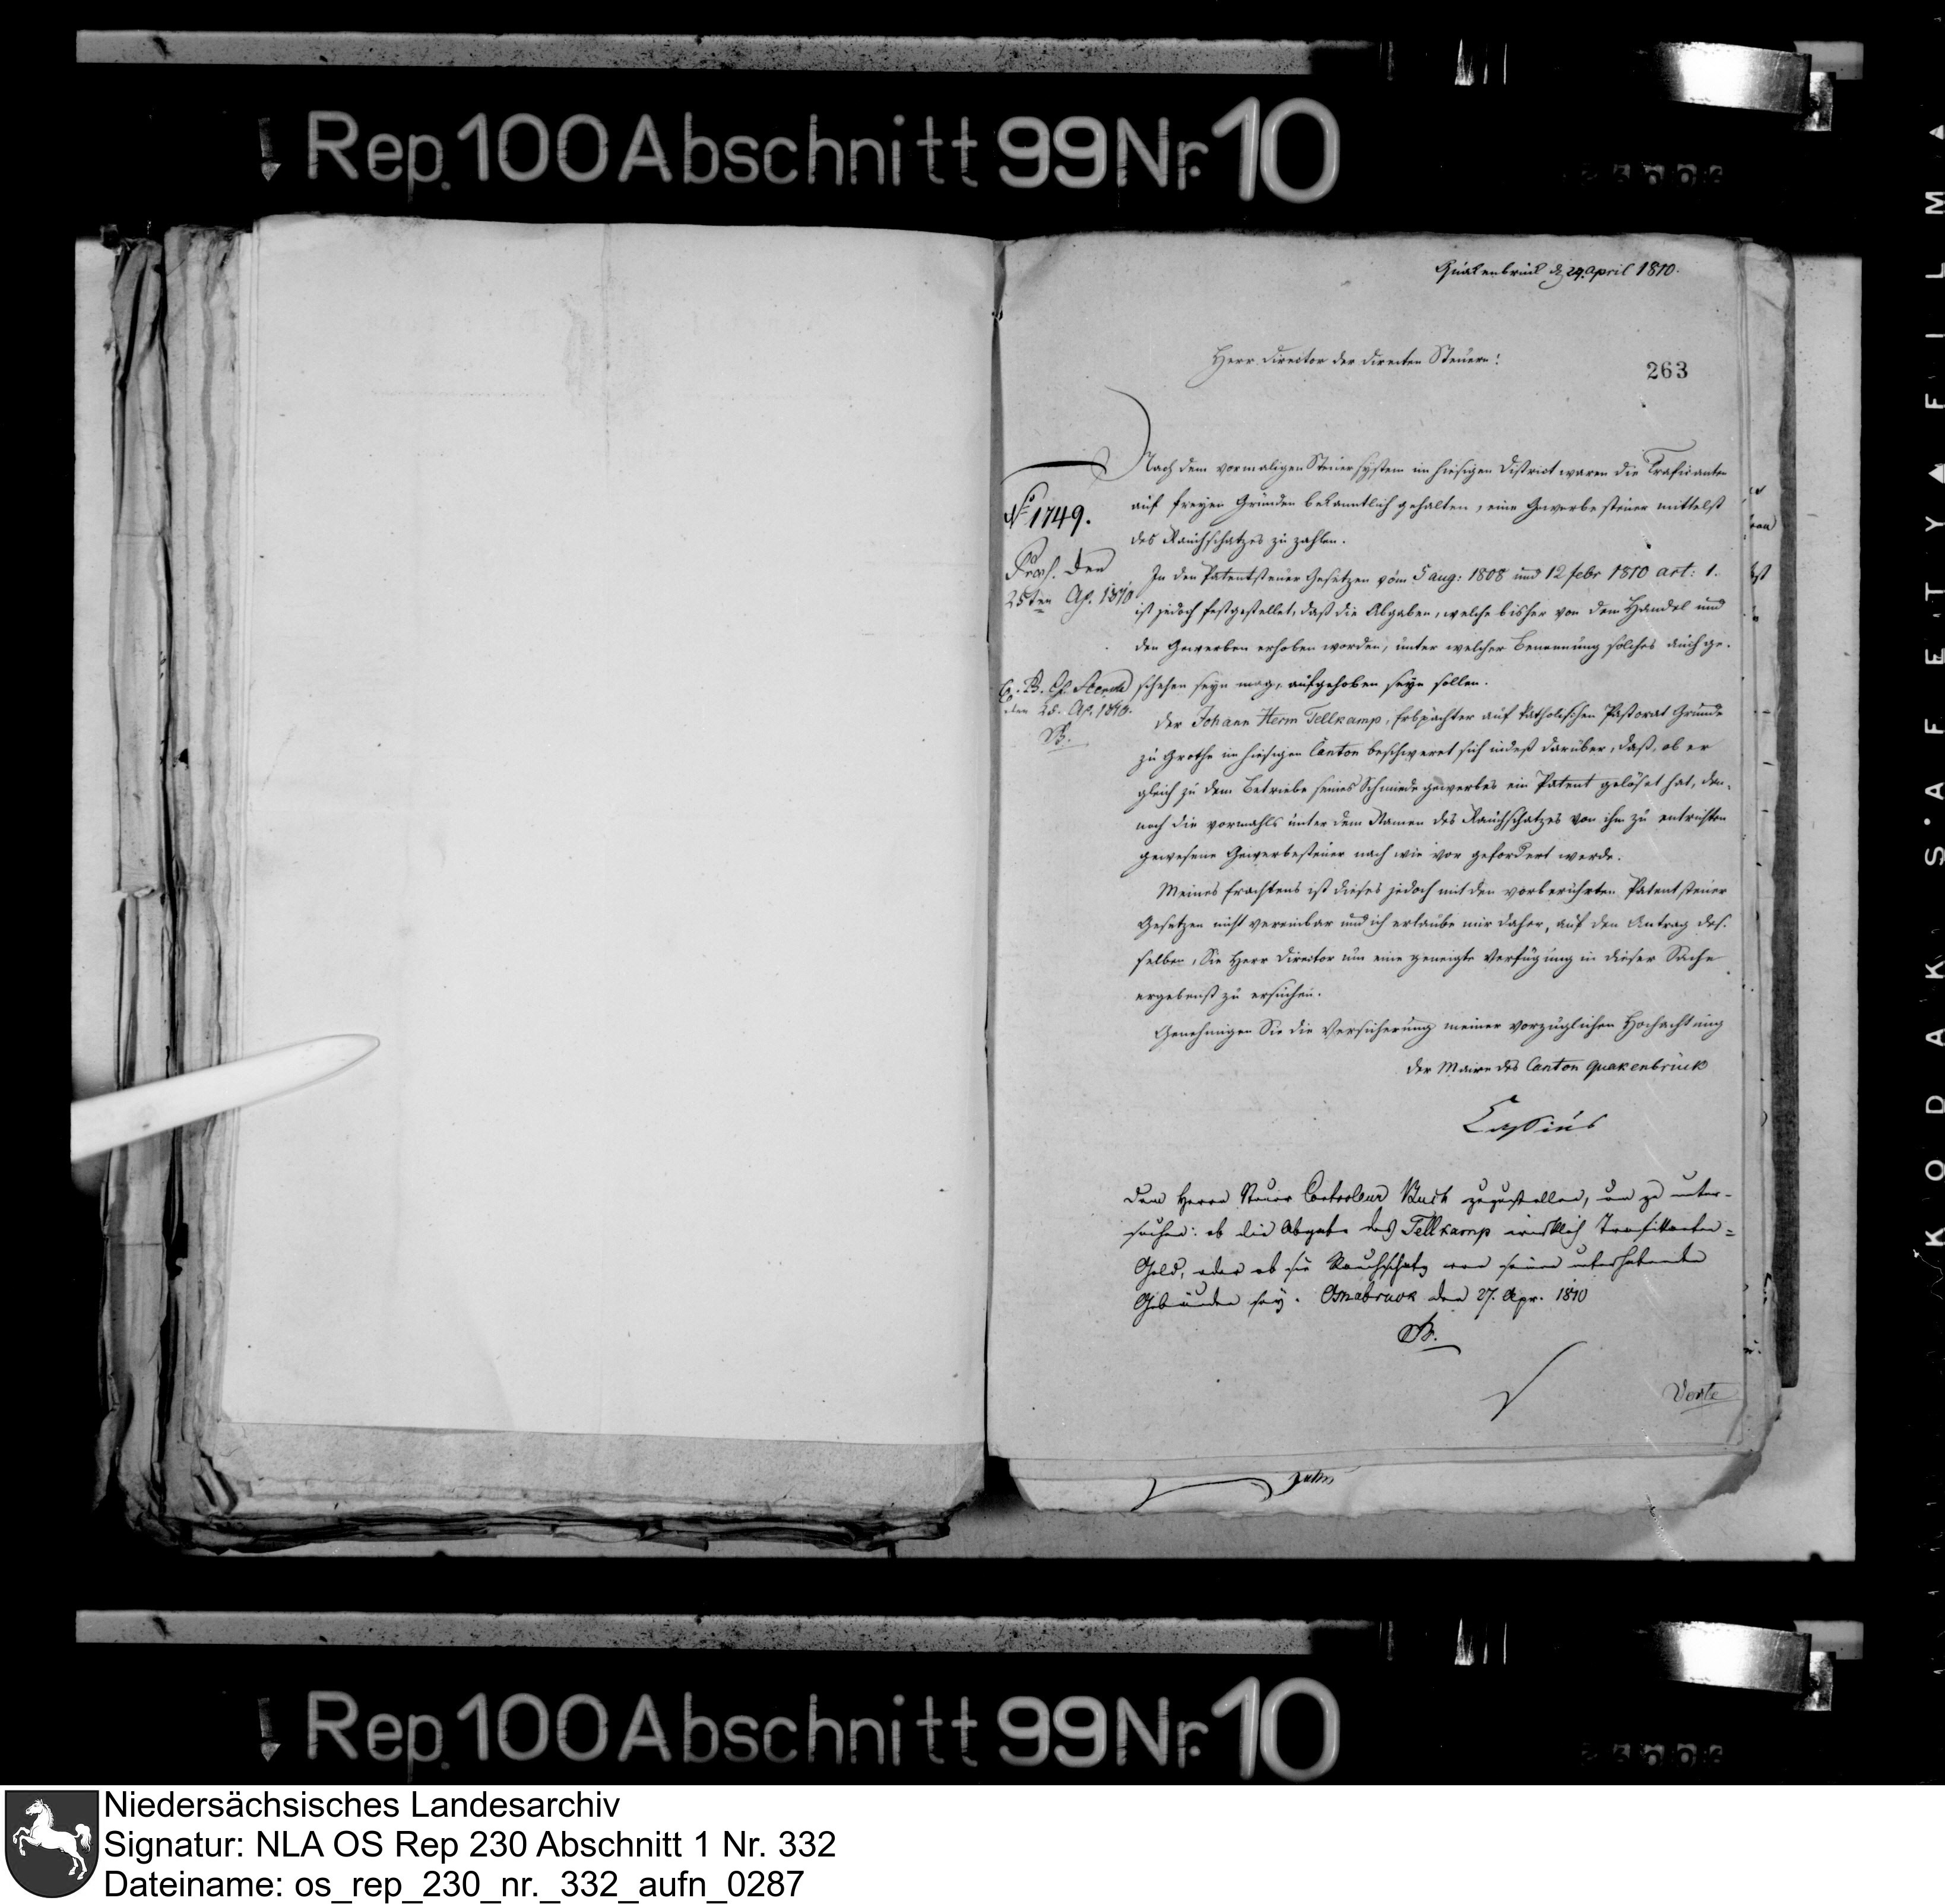 Rep. 100 Abschnitt 99 Nr. 10
Quakenbrück d 24 April 1810.
Herr Director der directen Steuern!
263
Nach dem vormaligen Steuersystem im hiesigen District waren die Traficanten
auf freyen Gründen bekanntlich gehalten, eine Gewerbesteuer mittelst
des Rauchschatzes zu zahlen.
In den Patentsteuer Gesetzen vom 5 aug: 1808 und 12 febr 1810 art: 1.
ist jedoch festgestellet, daß die Abgaben, welche bisher von dem Handel und
den Gewerben erhoben worden, unter welcher Benennung solches auch ge-
schehen seyn mag, aufgehoben seyn sollen.
Der Johann Herm Tellkamp, Erbpächter auf katholischen Pastorat Grunde
zu Grothe im hiesigen Canton beschweret sich indeß darüber, daß, ob er
gleich zu dem Betriebe seines Schmiedegewerbes ein Patent gelöset hat, den-
noch die vormahls unter dem Namen des Rauchschatzes von ihm zu entrichten
gewesene Gewerbesteuer nach wie vor gefordert werde.
Meines Erachtens ist dieses jedoch mit den vorberührten Patentsteuer
Gesetzen nicht vereinbar und ich erlaube mir daher, auf den Antrag des-
selben, Sie Herr Director um eine geneigte Verfügung in dieser Sache
ergebenst zu ersuchen.
Genehmigen Sie die Versicherung meiner vorzüglichen Hochachtung
Der Maire des Canton Quakenbrück
Cassius
No 1749.
Praes. den
25ten Ap. 1810
den 28. Ap. 1810.
Dem Herrn Steuer Controleur Buch zuzustellen, um zu unter-
suchen: ob die Abgabe des Tellkamp wirklich Trafikanten-
Geld, oder ob sie Rauchschatz von seinen unterhabenden
Gebäuden sey. Osnabruck den 27. Apr. 1810
Verte
↓ Rep. 100 Abschnitt 99 Nr. 10
KODAK SAFETY FILM
Niedersächsisches Landesarchiv
Signatur: NLA OS Rep 230 Abschnitt 1 Nr. 332
Dateiname: os_rep_230_nr._332_aufn_0287